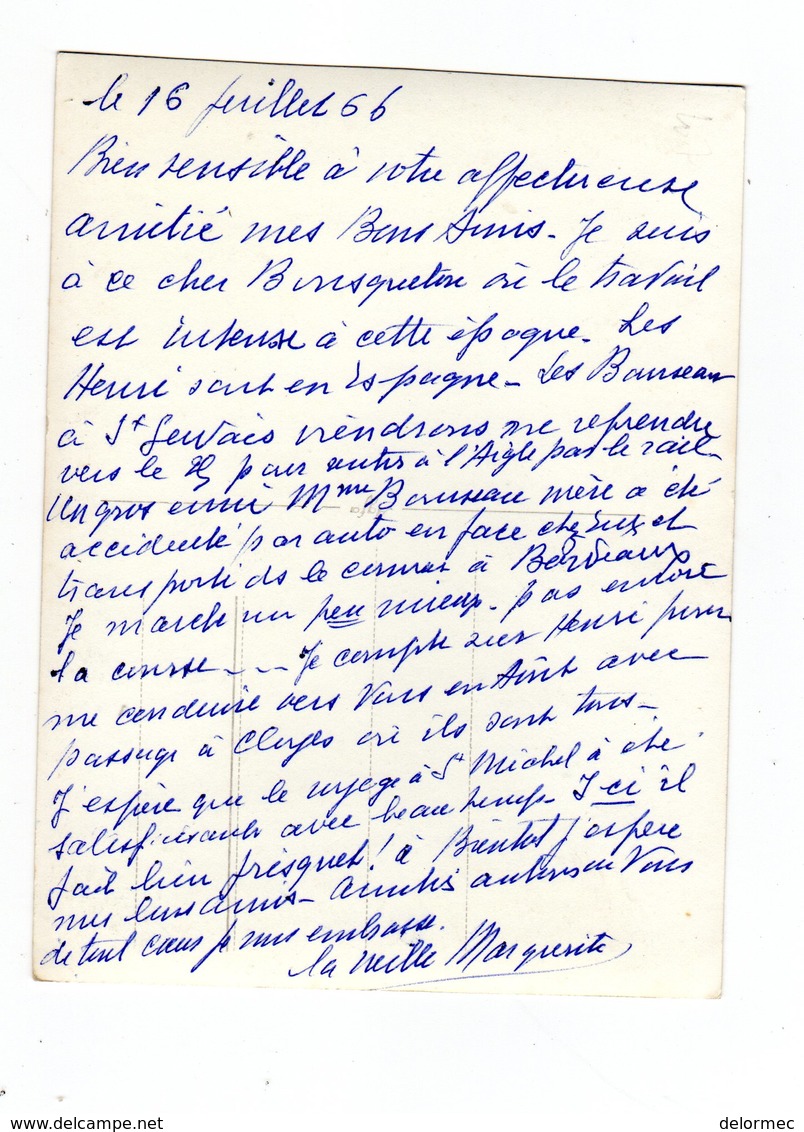 le 16 juillet 66
Bien sensible à votre affectueuse
amitié mes Bons Amis - Je suis
à ce cher Bousqueton où le travail
est intense à cette époque - Les
Henri sont en Espagne - Les Bonseau
à St Gervais viendrons me reprendre
vers le 25 pour à l'Aigle par le rail -
Un gros ennui Mme Bonseau mère a été
accidenté par auto en face chez eux et
transporté ds le à Bordeaux
Je marche un peu mieux - pas encore
la course - - - Je compte sur Henri pour
me conduire vers Vous en Août avec
passage à Cloyes où ils sont tous -
J'espère que le voyage à St Michel a été
satisfaisante avec beau temps - Ici il
fait bien frisquet ! à Bientôt j'espère
mes bons amis - Amitiés autour de Vous
de tout cœur je vous embrasse.
la vieille Marguerite
delormec